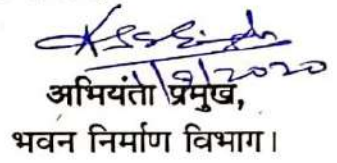 1/9/2020
अभियंता प्रमुख,
भवन निर्माण विभाग।